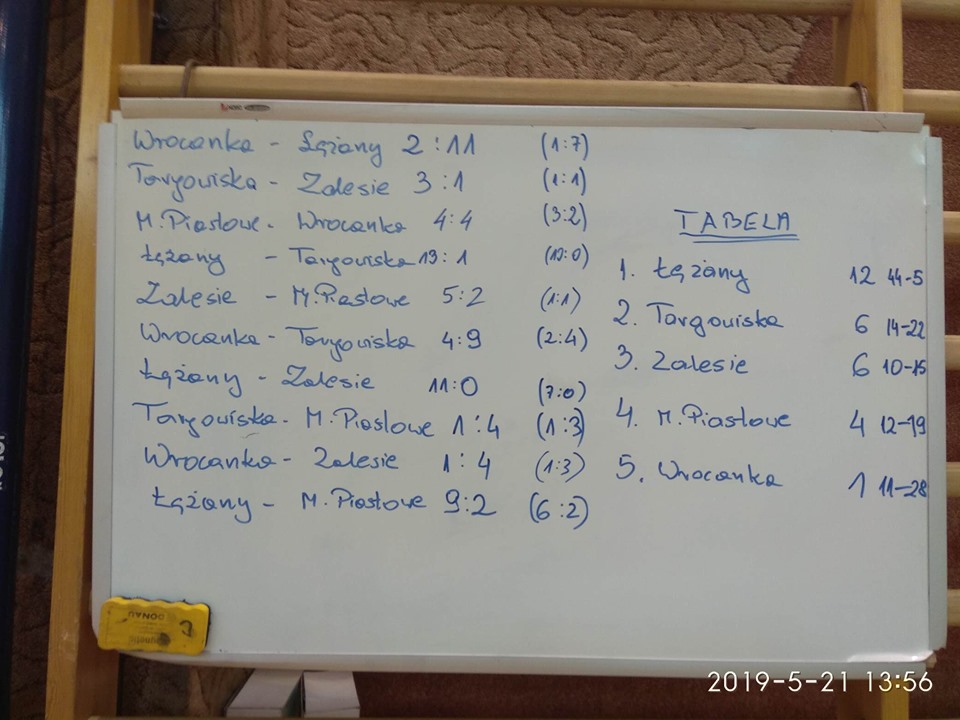 Wrocanka - Łężany 2:11 (1:7)
Targowiska - Zalesie 3:1 (1:1)
M.Piastowe - Wrocanka 4:4 (3:2)
Łężany - Targowiska 13:1 (10:0)
Zalesie - M.Piastowe 5:2 (1:1)
Wrocanka - Targowiska 4:9 (2:4)
Łężany - Zalesie 11:0 (7:0)
Targowiska - M.Piastowe 1:4 (1:3)
Wrocanka - Zalesie 1:4 (1:3)
Łężany - M.Piastowe 9:2 (6:2)
TABELA
1. Łężany 12 44-5
2. Targowiska 6 14-22
3. Zalesie 6 10-15
4. M.Piastowe 4 12-19
5. Wrocanka 1 11-28
DONAU
2019-5-21 13:56